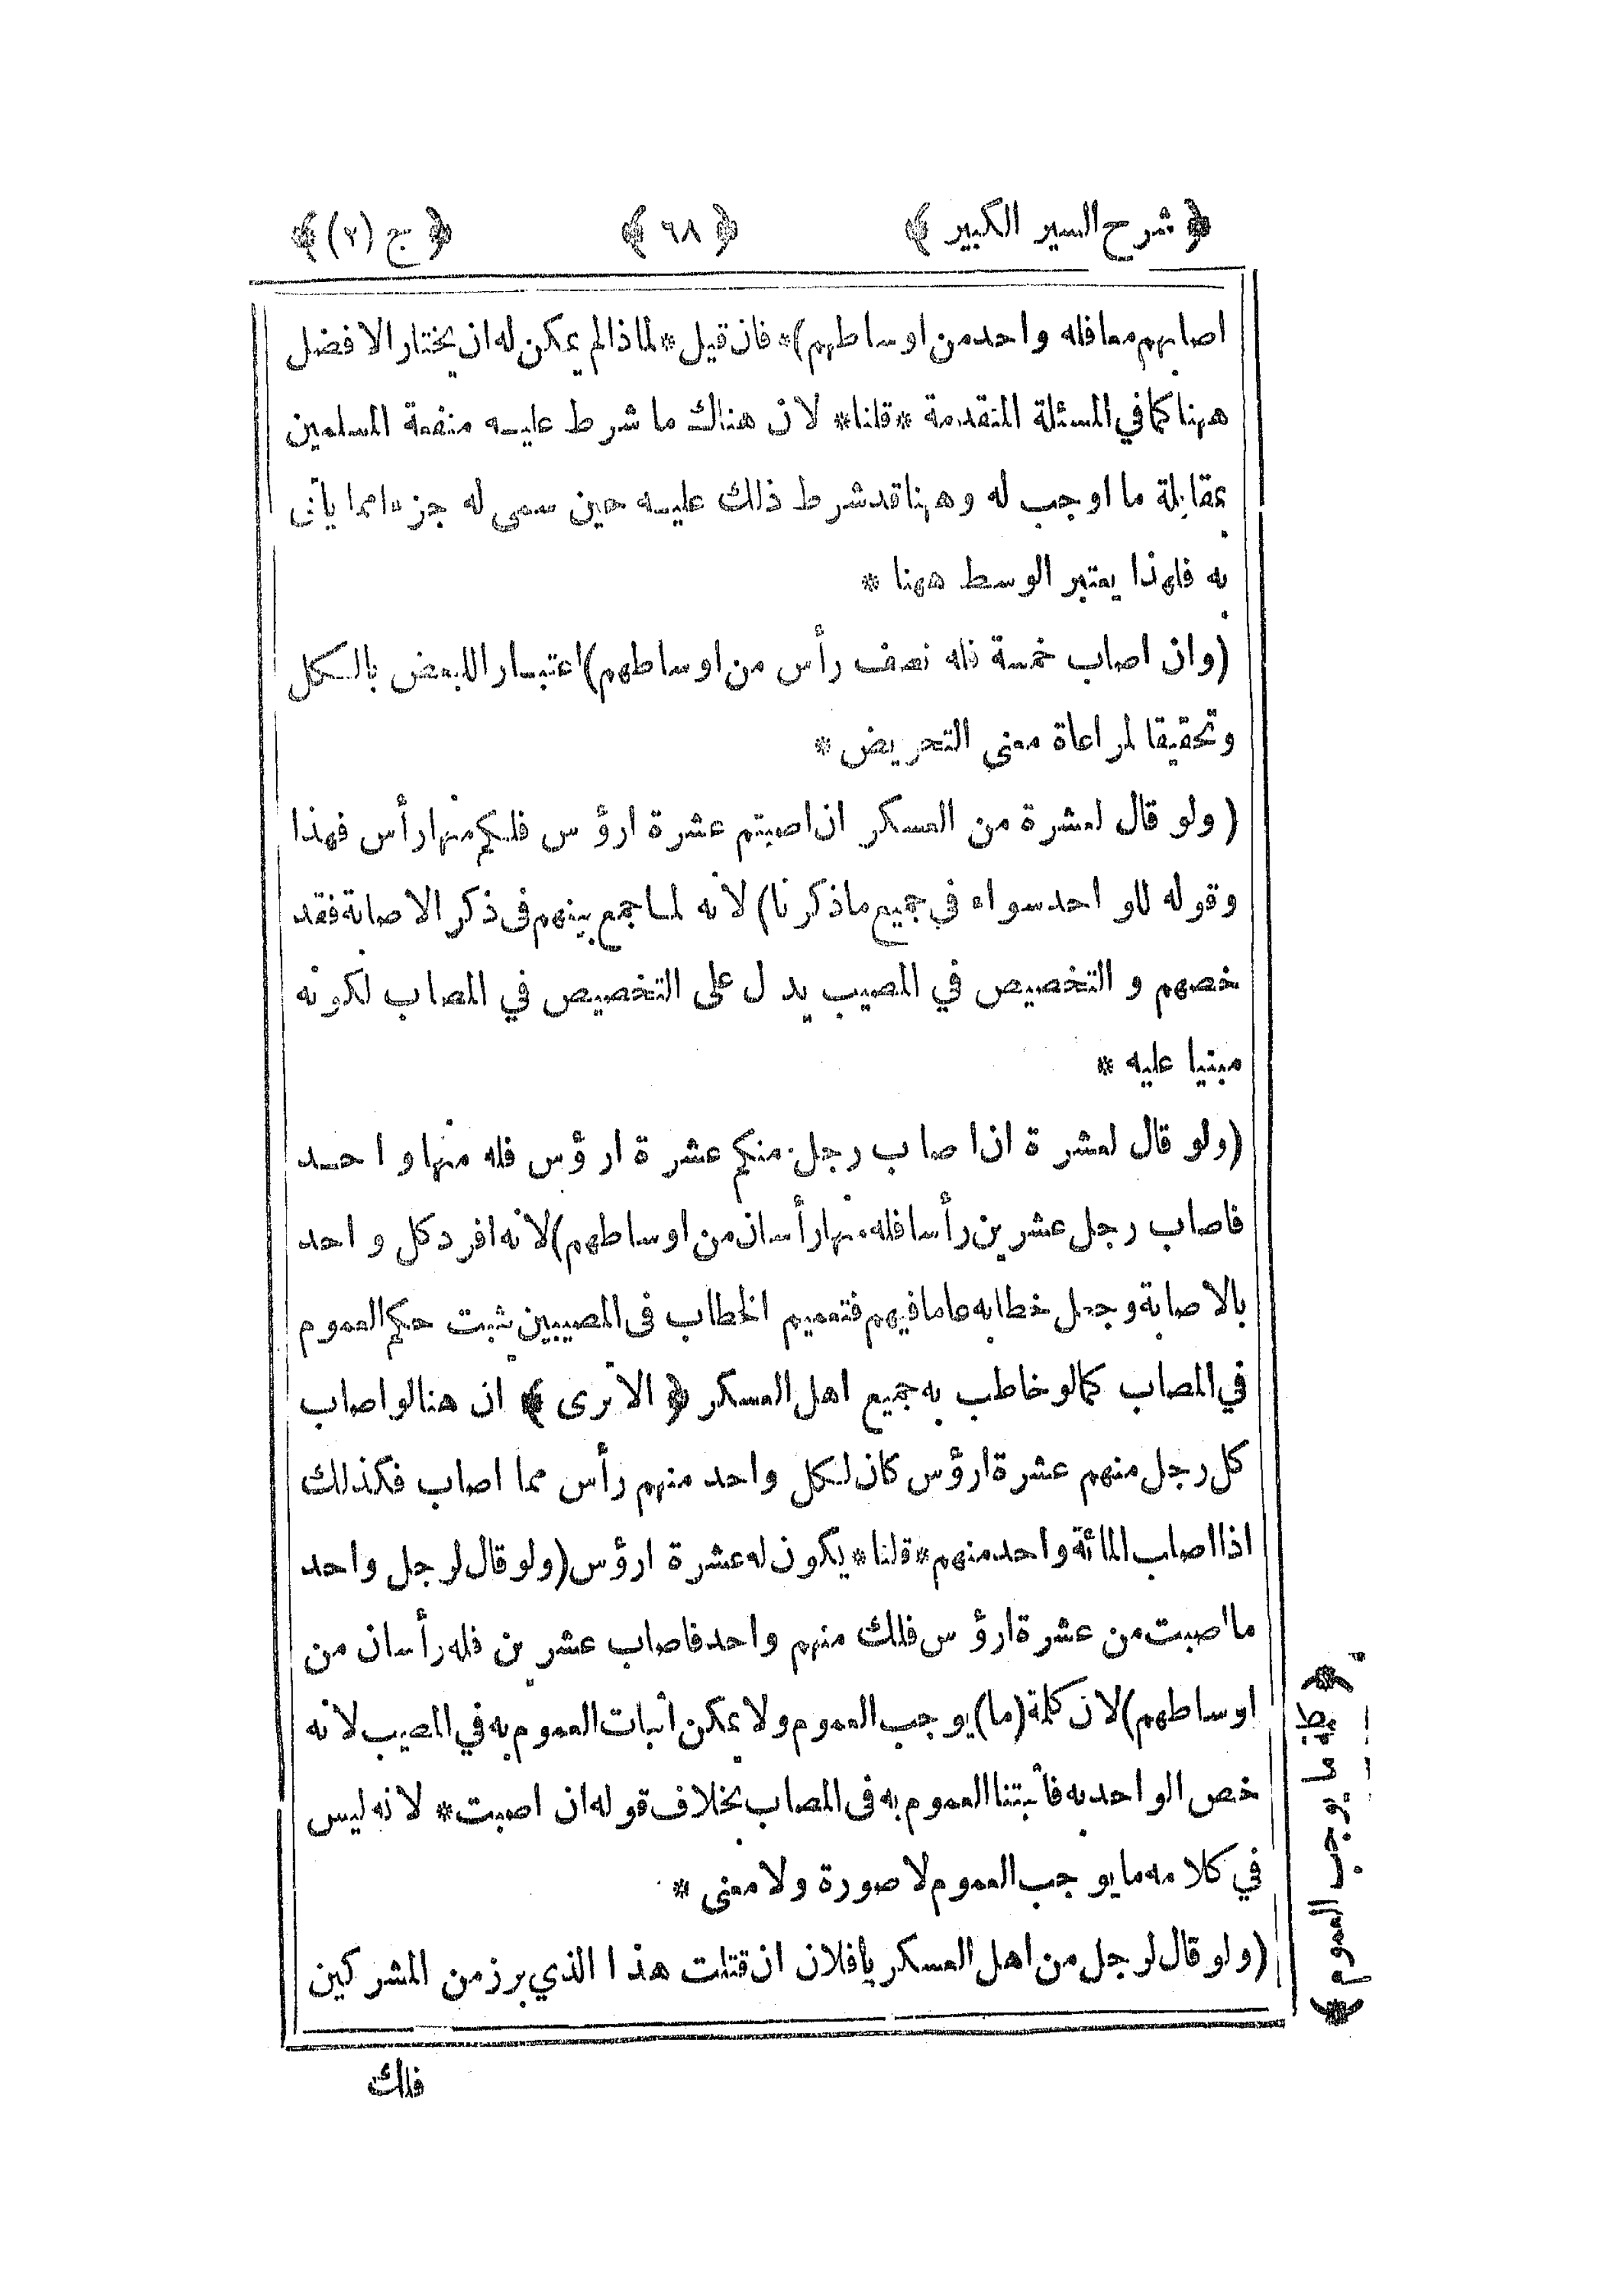 ﴿ شرح السير الكبير ﴾ ﴿ ٦٨ ﴾ ﴿ ج (٢) ﴾
اصابهم معا فله واحد من اوساطهم)* فان قيل * لماذا لم يمكن له ان يختار الافضل
ههنا كما في المسئلة المتقدمة *قلنا* لان هناك ما شرط عليه منفعة المسلمين
بمقابلة ما اوجب له وههنا قد شرط ذلك عليه حين سمى له جزءا مما يأتى
به فلهذا يعتبر الوسط ههنا *
(وان اصاب خمسة فله نصف رأس من اوساطهم) اعتبار اللبعض بالكل
وتحقيقا لمراعاة معنى التحريض *
(ولو قال لعشرة من العسكر ان اصبتم عشرة ارؤس فلكم منها رأس فهذا
وقوله للواحد سواء في جميع ماذكرنا) لانه لما جمع بينهم فى ذكر الاصابة فقد
خصهم و التخصيص في المصيب يدل على التخصيص في المصاب لكونه
مبنيا عليه *
(ولو قال لعشرة ان اصاب رجل منكم عشرة ارؤس فله منها واحد
فاصاب رجل عشرين رأسا فله منها رأسان من اوساطهم) لانه افرد كل واحد
بالاصابة وجعل خطابه عاما فيهم فتعميم الخطاب فى المصيبين يثبت حكم العموم
في المصاب كما لو خاطب به جميع اهل العسكر ﴿ الا ترى ﴾ ان هنا لو اصاب
كل رجل منهم عشرة ارؤس كان لكل واحد منهم رأس مما اصاب فكذلك
اذا اصاب المائة واحد منهم *قلنا* يكون له عشرة ارؤس (ولو قال لرجل واحد
ما اصبت من عشرة ارؤس فلك منهم واحد فاصاب عشرين فله رأسان من
اوساطهم) لان كلمة (ما) يوجب العموم ولا يمكن اثبات العموم به في المصيب لانه
خص الواحد به فأثبتنا العموم به فى المصاب بخلاف قوله ان اصبت * لانه ليس
في كلامه ما يوجب العموم لا صورة ولا معنى *
(ولو قال لرجل من اهل العسكر يا فلان ان قتلت هذا الذي برز من المشركين
فلك
﴿ ما يوجب العموم ﴾